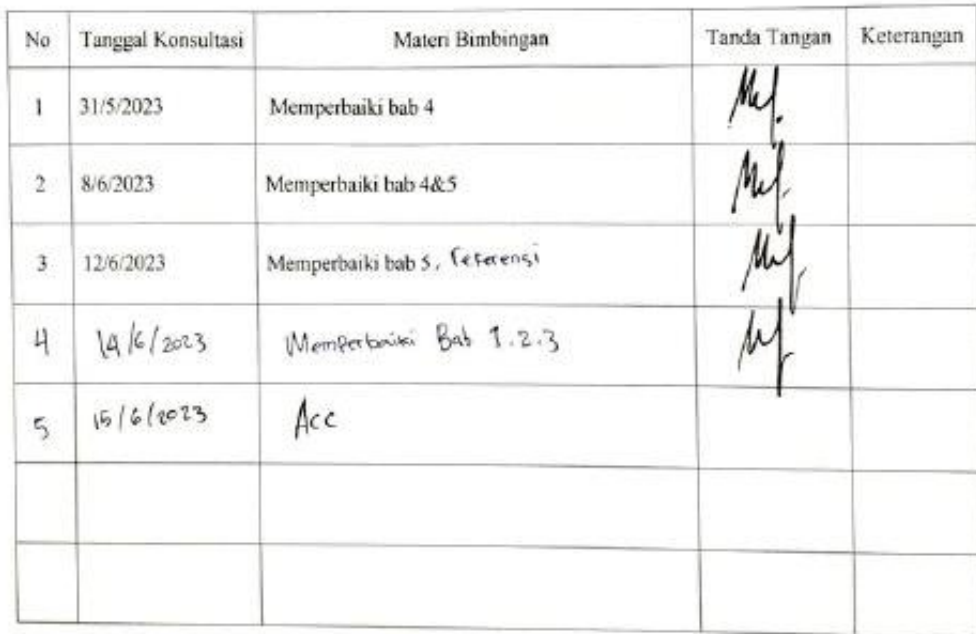 No Tanggal Konsultasi Materi Bimbingan Tanda Tangan Keterangan
1 31/5/2023 Memperbaiki bab 4
2 8/6/2023 Memperbaiki bab 4&5
3 12/6/2023 Memperbaiki bab 5, referensi
4 14/6/2023 Memperbaiki Bab 1.2.3
5 15/6/2023 Acc